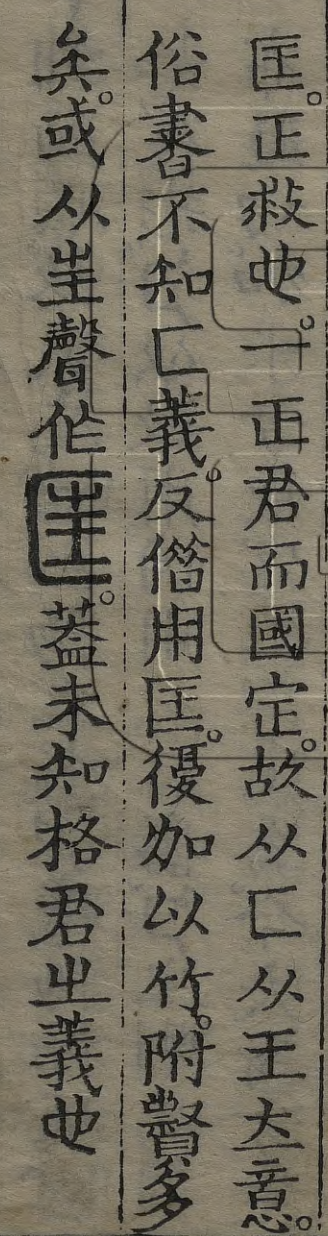 匡。正救也。一正君而國定。故从匚从王厺意。
俗書不知匚義。反借用匡。復加以竹。附贅多
矣。或从㞷聲作𠥰。蓋未知格君㞢義也